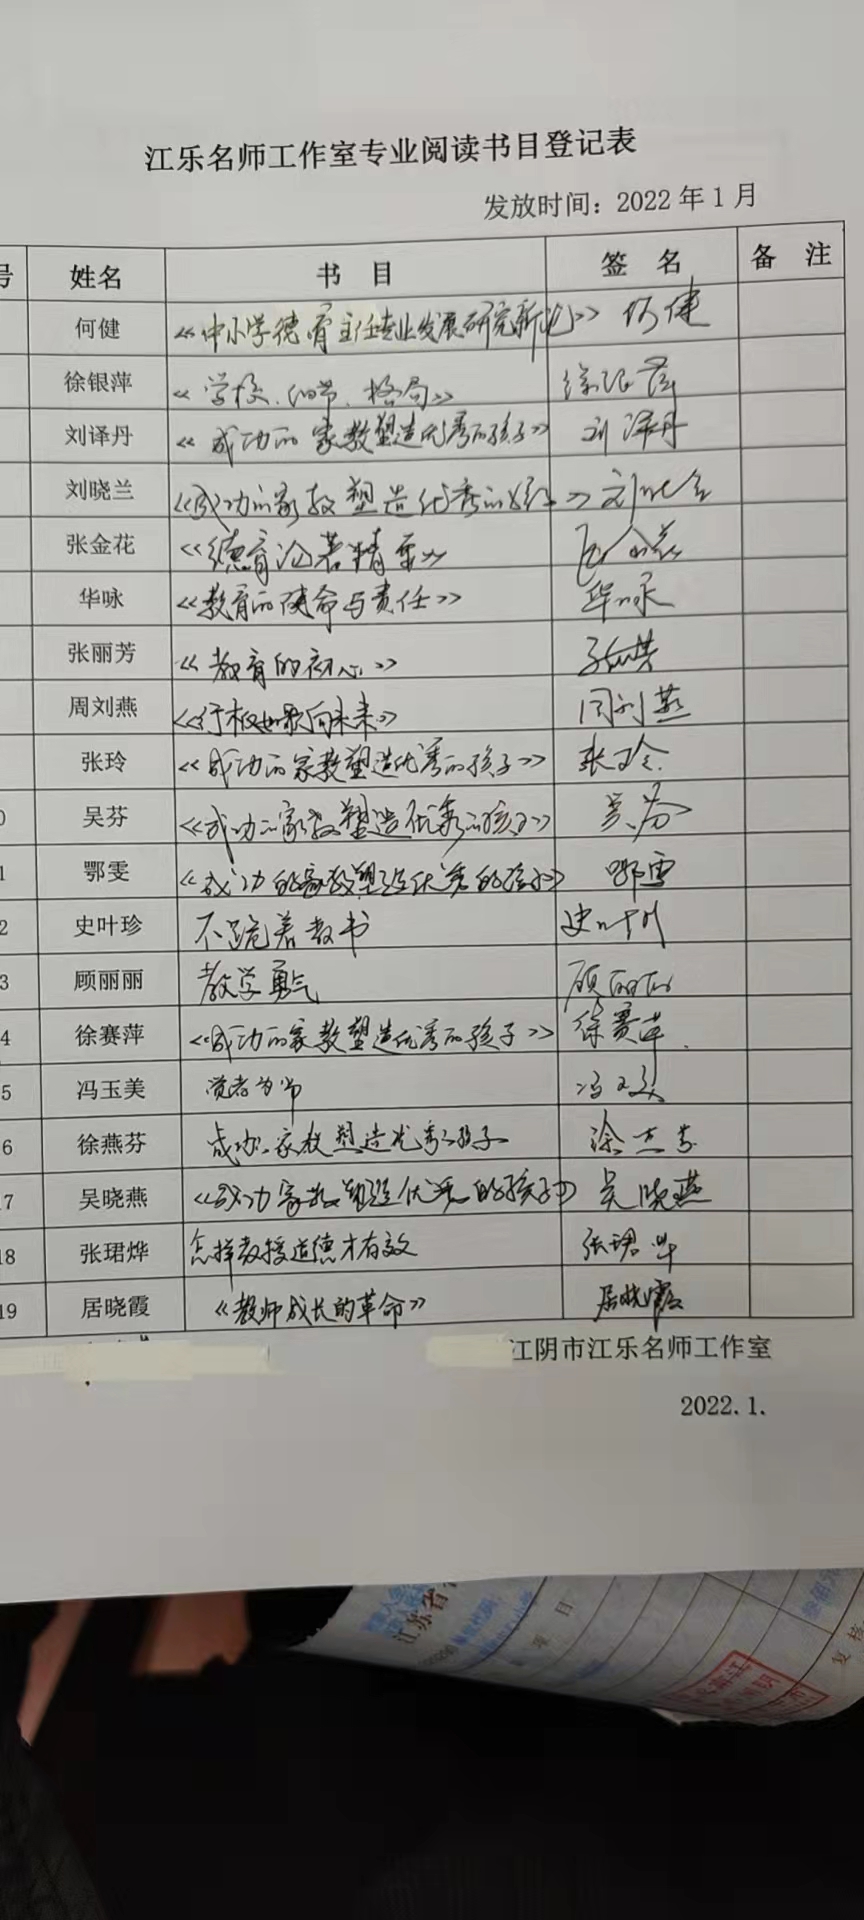 江乐名师工作室专业阅读书目登记表
发放时间：2022年1月
号 姓名 书 目 签 名 备 注
何健 《中小学德育主任专业发展研究新论》 何健
徐银萍 《学校、细节、格局》 徐银萍
刘译丹 《成功的家教塑造优秀的孩子》 刘译丹
刘晓兰 《成功的家教塑造优秀的孩子》 刘晓兰
张金花 《德育论著精要》 张金花
华咏 《教育的使命与责任》 华咏
张丽芳 《教育的初心》 张丽芳
周刘燕 《行板如歌向未来》 周刘燕
张玲 《成功的家教塑造优秀的孩子》 张玲
0 吴芬 《成功的家教塑造优秀的孩子》 吴芬
1 鄂雯 《成功的家教塑造优秀的孩子》 鄂雯
2 史叶珍 不跪着教书 史叶珍
3 顾丽丽 教学勇气 顾丽丽
4 徐赛萍 《成功的家教塑造优秀的孩子》 徐赛萍
5 冯玉美 觉者为师 冯玉美
6 徐燕芬 成功家教塑造优秀孩子 徐燕芬
17 吴晓燕 《成功家教塑造优秀的孩子》 吴晓燕
18 张珺烨 怎样教授道德才有效 张珺烨
19 居晓霞 《教师成长的革命》 居晓霞
江阴市江乐名师工作室
2022.1.
江苏省
项目
复核